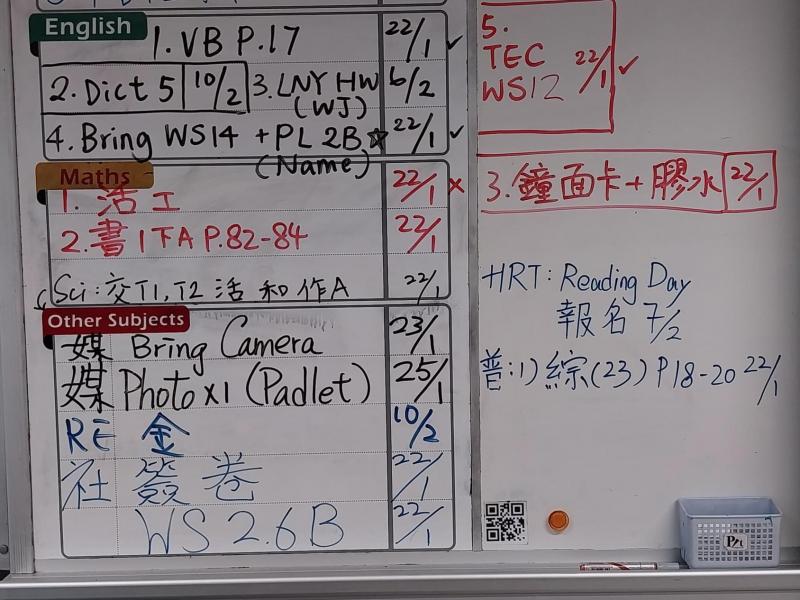 English
1. VB P.17 22/1 ✓
2. Dict 5 10/2 3. LNY HW 6/2
(WJ)
4. Bring WS14 + PL 2B ☆ 22/1 ✓
(Name)
Maths
1. 活工 22/1 ×
2. 書1下A P.82-84 22/1
Sci: 交T1, T2 活和作A 22/1
Other Subjects
媒 Bring Camera 23/1
媒 Photo x1 (Padlet) 25/1
RE 金 10/2
社 簽卷 22/1
WS 2.6B 22/1
5.
TEC 22/1 ✓
WS12
3. 鐘面卡+膠水 22/1
HRT: Reading Day
報名 7/2
普:1) 綜(23) P18-20 22/1